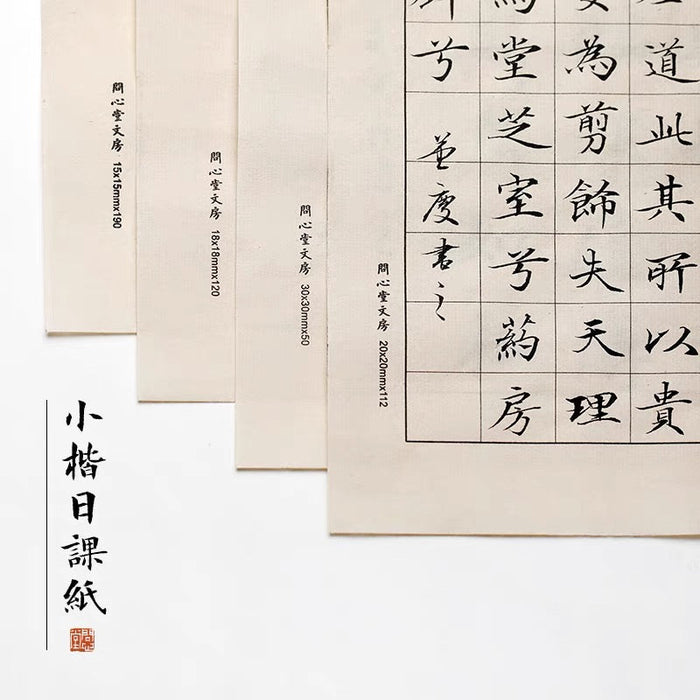 道此其所以貴
為剪飾失天理
堂芝室兮葯房
兮
並書之
問心堂文房 20x20mmx112
問心堂文房 30x30mmx50
問心堂文房 18x18mmx120
問心堂文房 15x15mmx190
小楷日課紙